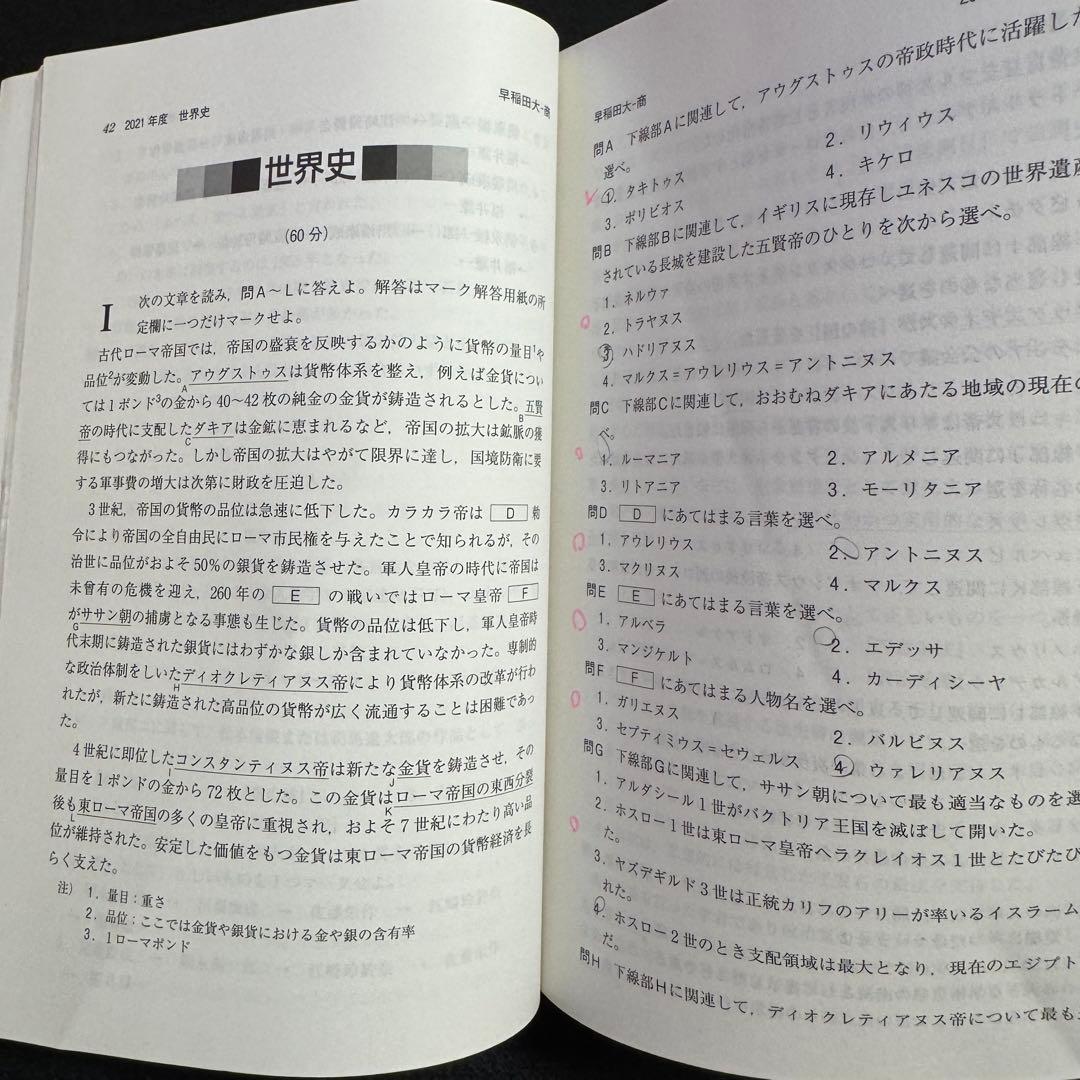 42 2021年度 世界史
早稲田大-商
世界史
(60分)
I
次の文章を読み，問A～Lに答えよ。解答はマーク解答用紙の所
定欄に一つだけマークせよ。
古代ローマ帝国では，帝国の盛衰を反映するかのように貨幣の量目1や
品位2が変動した。アウグストゥスは貨幣体系を整え，例えば金貨につい
A
ては1ポンド3の金から40～42枚の純金の金貨が鋳造されるとした。五賢
B
帝の時代に支配したダキアは金鉱に恵まれるなど，帝国の拡大は鉱脈の獲
C
得にもつながった。しかし帝国の拡大はやがて限界に達し，国境防衛に要
する軍事費の増大は次第に財政を圧迫した。
3世紀，帝国の貨幣の品位は急速に低下した。カラカラ帝は D 勅
令により帝国の全自由民にローマ市民権を与えたことで知られるが，その
治世に品位がおよそ50％の銀貨を鋳造させた。軍人皇帝の時代に帝国は
未曾有の危機を迎え，260年の E の戦いではローマ皇帝 F
がササン朝の捕虜となる事態も生じた。貨幣の品位は低下し，軍人皇帝時
G
代末期に鋳造された銀貨にはわずかな銀しか含まれていなかった。専制的
な政治体制をしいたディオクレティアヌス帝により貨幣体系の改革が行わ
H
れたが，新たに鋳造された高品位の貨幣が広く流通することは困難であっ
た。
4世紀に即位したコンスタンティヌス帝は新たな金貨を鋳造させ，その
I J
量目を1ポンドの金から72枚とした。この金貨はローマ帝国の東西分裂
K
後も東ローマ帝国の多くの皇帝に重視され，およそ7世紀にわたり高い品
L
位が維持された。安定した価値をもつ金貨は東ローマ帝国の貨幣経済を長
らく支えた。
注) 1．量目：重さ
2．品位：ここでは金貨や銀貨における金や銀の含有率
3．1ローマポンド
早稲田大-商
問A 下線部Aに関連して，アウグストゥスの帝政時代に活躍した
選べ。
1．タキトゥス
2．リウィウス
3．ポリビオス
4．キケロ
問B 下線部Bに関連して，イギリスに現存しユネスコの世界遺産
されている長城を建設した五賢帝のひとりを次から選べ。
1．ネルウァ
2．トラヤヌス
3．ハドリアヌス
4．マルクス＝アウレリウス＝アントニヌス
問C 下線部Cに関連して，おおむねダキアにあたる地域の現在の
べ。
1．ルーマニア
2．アルメニア
3．リトアニア
3．モーリタニア
問D D にあてはまる言葉を選べ。
1．アウレリウス
2．アントニヌス
3．マクリヌス
4．マルクス
問E E にあてはまる言葉を選べ。
1．アルベラ
2．エデッサ
3．マンジケルト
4．カーディシーヤ
問F F にあてはまる人物名を選べ。
1．ガリエヌス
2．バルビヌス
3．セプティミウス＝セウェルス
4．ウァレリアヌス
問G 下線部Gに関連して，ササン朝について最も適当なものを選
1．アルダシール1世がバクトリア王国を滅ぼして開いた。
2．ホスロー1世は東ローマ皇帝ヘラクレイオス1世とたびたび
た。
3．ヤズデギルド3世は正統カリフのアリーが率いるイスラーム
れた。
4．ホスロー2世のとき支配領域は最大となり，現在のエジプト
だ。
問H 下線部Hに関連して，ディオクレティアヌス帝について最も